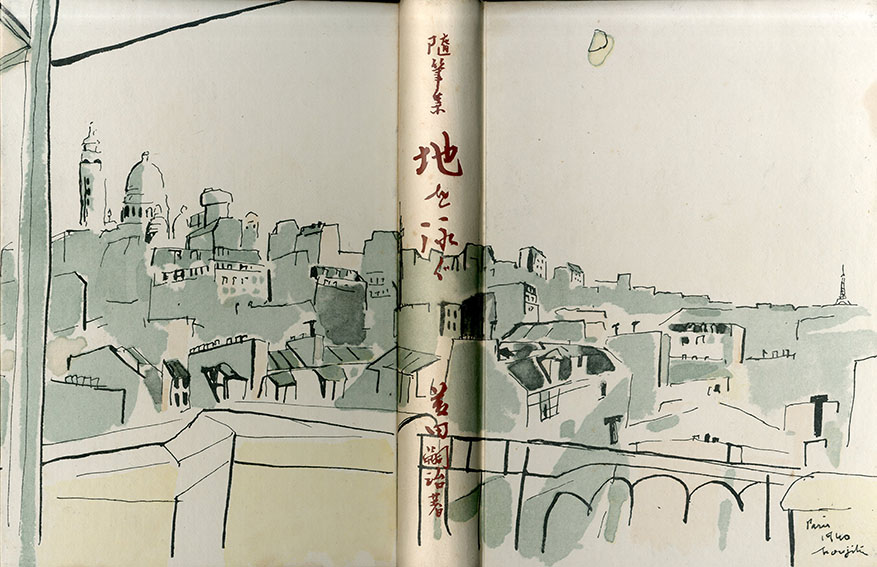 隨筆集
地を泳ぐ
藤田嗣治著
Paris
1940
Foujita